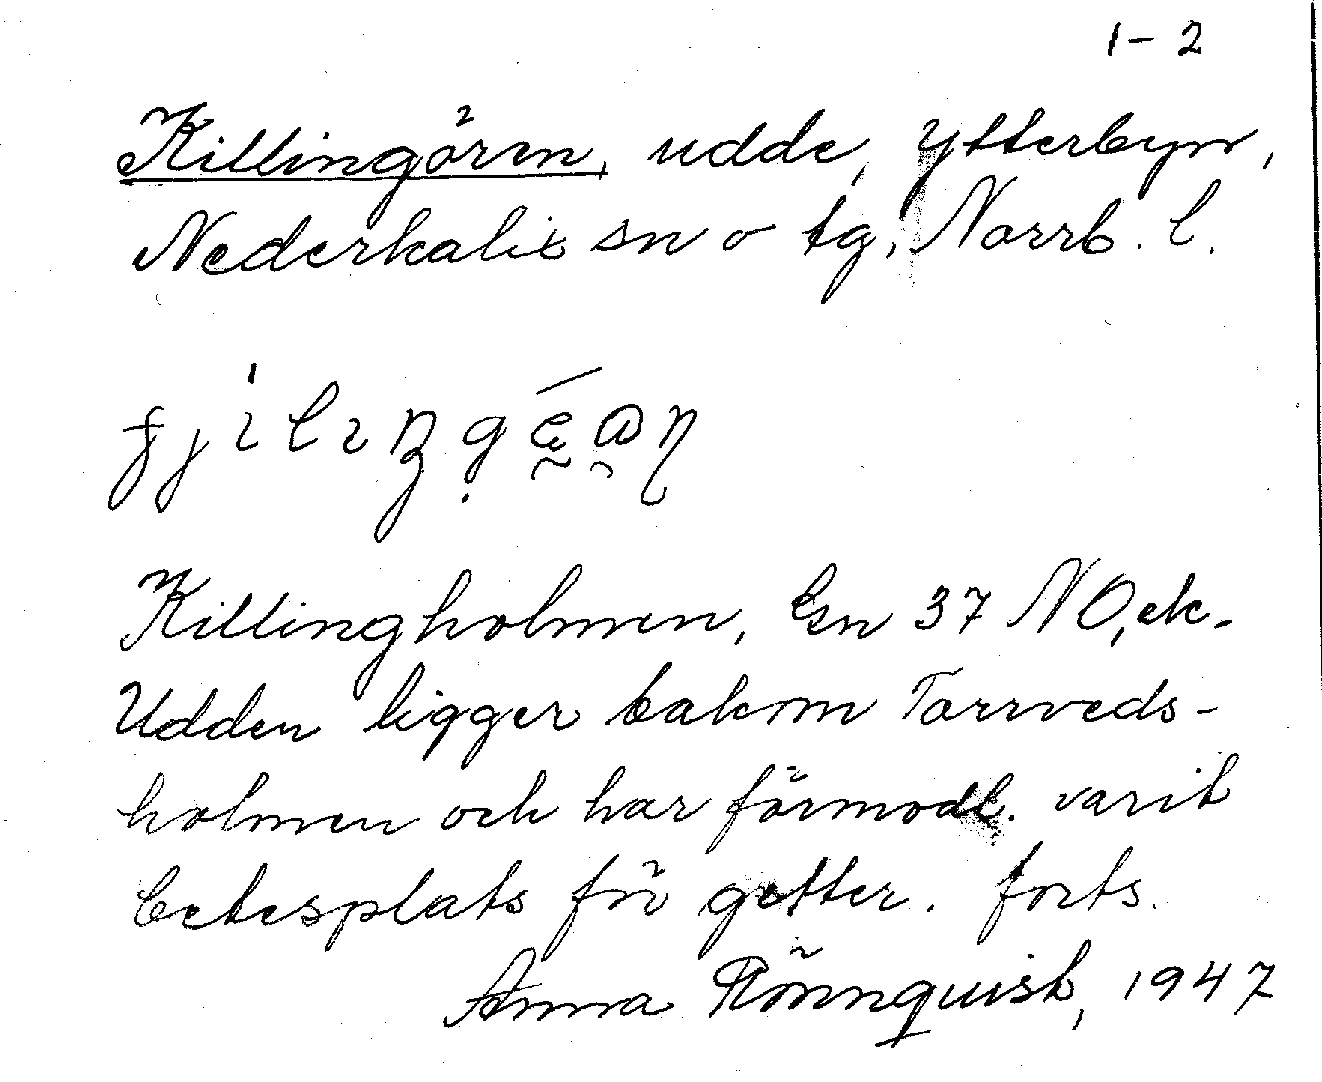 1-2
Killingören, udde, Ytterbyn,
Nederkalix sn o tg, Norrb. l.
Killingholmen, Gsn 37 NO, ek.
Udden ligger bakom Torrveds-
holmen och har förmodl. varit
betesplats för getter. forts.
Anna Rönnquist, 1947